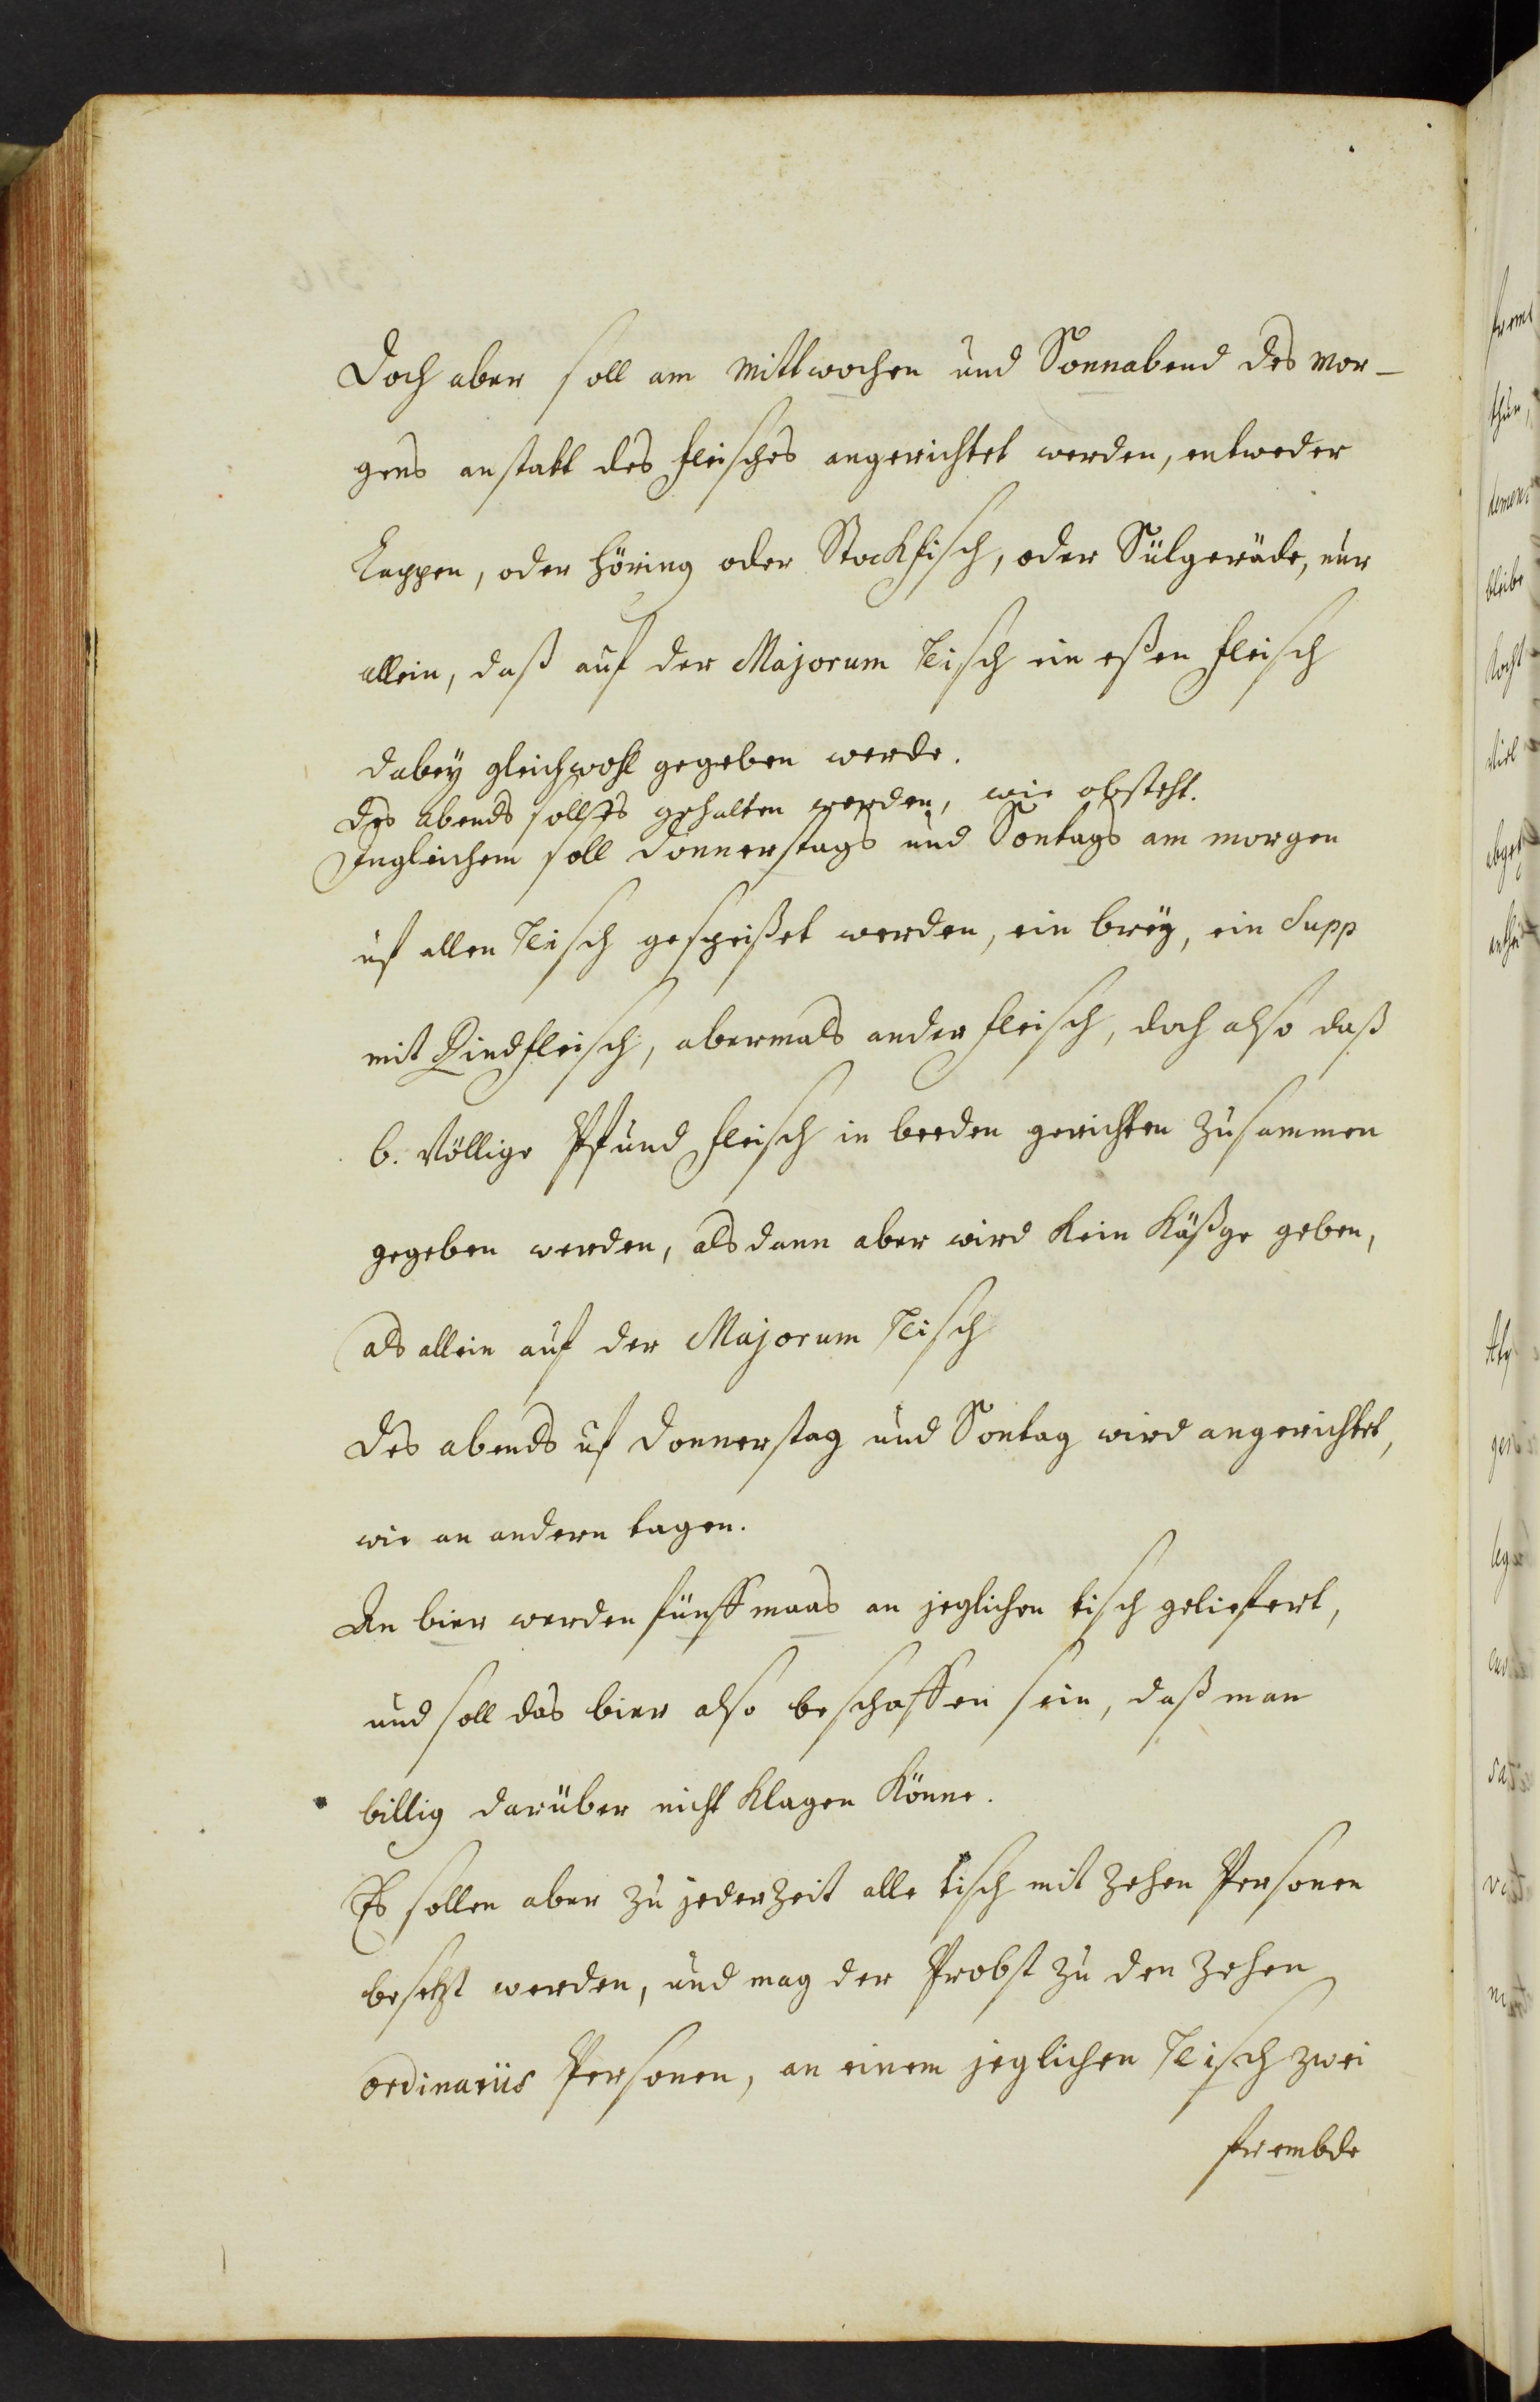 Doch aber soll am Mittwochen und Sonnabend des Mor-
gens anstatt des fleisches angerichtet werden, entweder
Lappen, oder Höring oder Stockfisch, oder Sülgeräde, nur
allein, daß auf der Majorum Tisch ein eßen fleisch
dabey gleichwohl gegeben werde.
Des abends soll es gehalten werden, wie obsteht.
Ingleichem soll Donnerstags und Sontags am morgen
uf allen Tisch gespeißet werden, ein brey, ein Supp
mit Rindfleisch, abermals ander fleisch, doch also daß
6. völlige Pfund fleisch in beeden gerichten zusammen
gegeben werden, als dann aber wird kein Käßge geben,
als allein auf der Majorum Tisch
Des abends uf Donnerstag und Sontag wird angerichtet,
wie an andern tagen.
An bier werden fünff maas an jeglichen tisch geliefert,
und soll das bier also beschaffen sein, daß man
billig darüber nicht klagen könne.
Es sollen aber zu jederzeit alle tisch mit zehen Personen
besetzt werden, und mag der Probst zu den zehen
ordinariis Personen, an einem jeglichen Tisch zwei
frembde